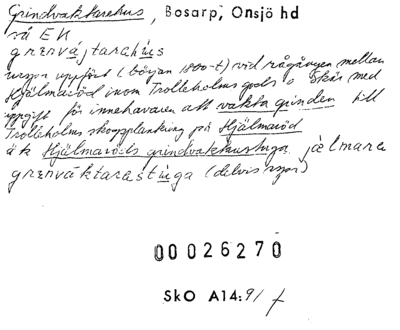 Grindvaktarehus, Bosarp, Onsjö hd
rå EK
grenvájtarahùs
uppfört (början 1800-t) vid rågången mellan
Hjälmaröd inom Trolleholms gods o Skår med
uppgift för innehavaren att vakta grinden till
Trolleholms skogsplankning på Hjälmaröd
äk Hjälmaröds grindvakthustuga jälmara
grenváktarastùga (delvis)
00026270
SkO A14:91